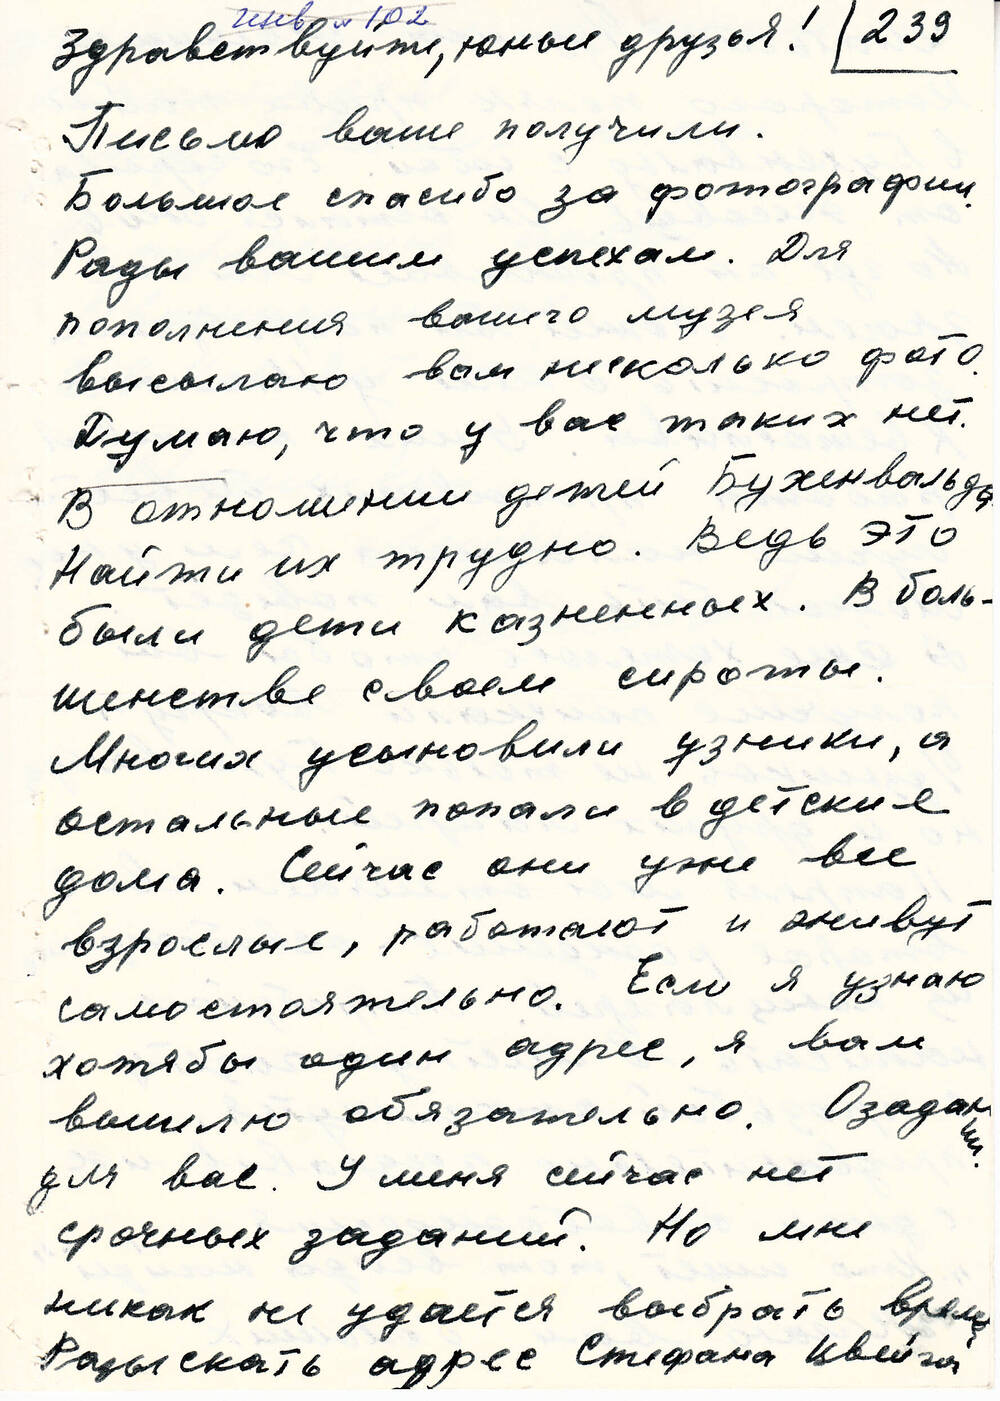 инв № 102
239
Здравствуйте, юные друзья!
Письмо ваше получили.
Большое спасибо за фотографии.
Рады вашим успехам. Для
пополнения вашего музея
высылаю вам несколько фото.
Думаю, что у вас таких нет.
В отношении детей Бухенвальда
Найти их трудно. Ведь это
были дети казненных. В боль-
шинстве своем сироты.
Многих усыновили узники, а
остальные попали в детские
дома. Сейчас они уже все
взрослые, работают и живут
самостоятельно. Если я узнаю
хотябы один адрес, я вам
вышлю обязательно. О задании
для вас. У меня сейчас нет
срочных заданий. Но мне
никак не удается выбрать время
Разыскать адрес Стефана Цвейга